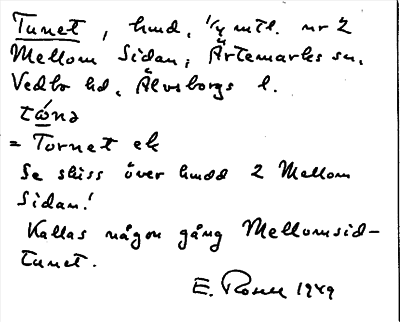 Tunet, hmd, 1/4 mtl. nr 2
Mellom Sidan, Ärtemarks sn,
Vedbo hd, Älvsborgs l.
= Tornet ek
Se skiss över hmdd 2 Mellom
Sidan!
Kallas någon gång Mellomsid-
tunet.
E. Rosell 1949